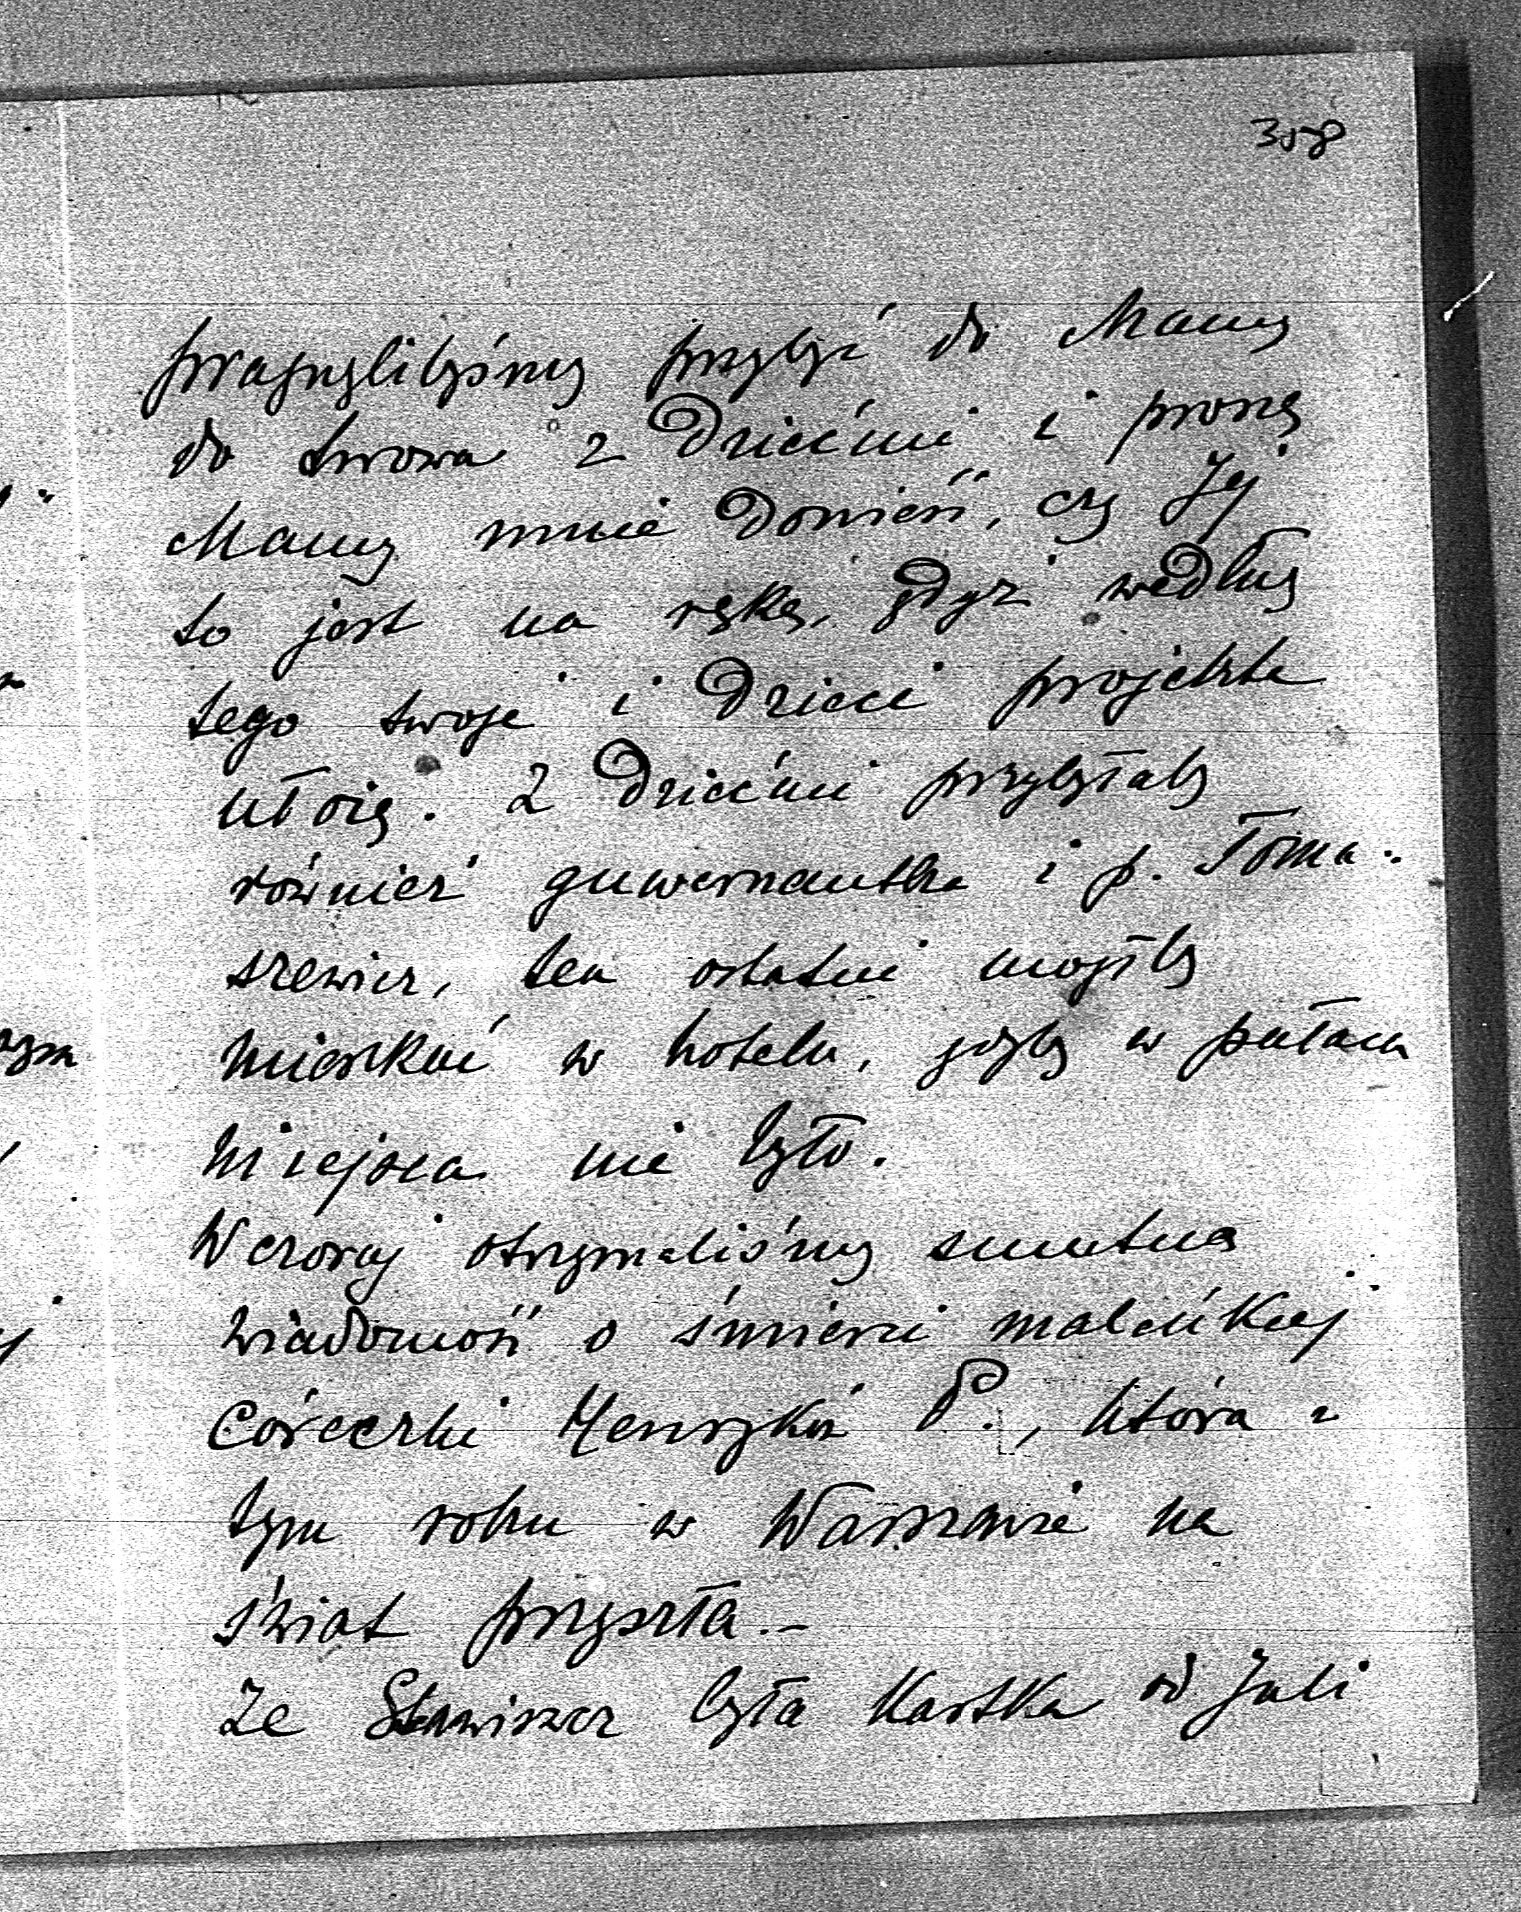 358
pragnęlibyśmy przybyć do Mamy
do Lwowa z Dziećmi i proszę
Mamy mnie donieść, czy Jej
to jest na rękę, gdyż według
tego swoje i Dzieci projekta
ułożę. Z Dziećmi przybyłaby
również guwernantka i p. Toma-
szewicz, ten ostatni mógłby
mieszkać w hotelu, gdyby w pałacu
miejsca nie było.
Wczoraj otrzymaliśmy smutną
wiadomość o śmierci maleńkiej
córeczki Henryków P., która w
tym roku w Warszawie na
świat przyszła.-
Ze Stawiszcz była kartka od Juli